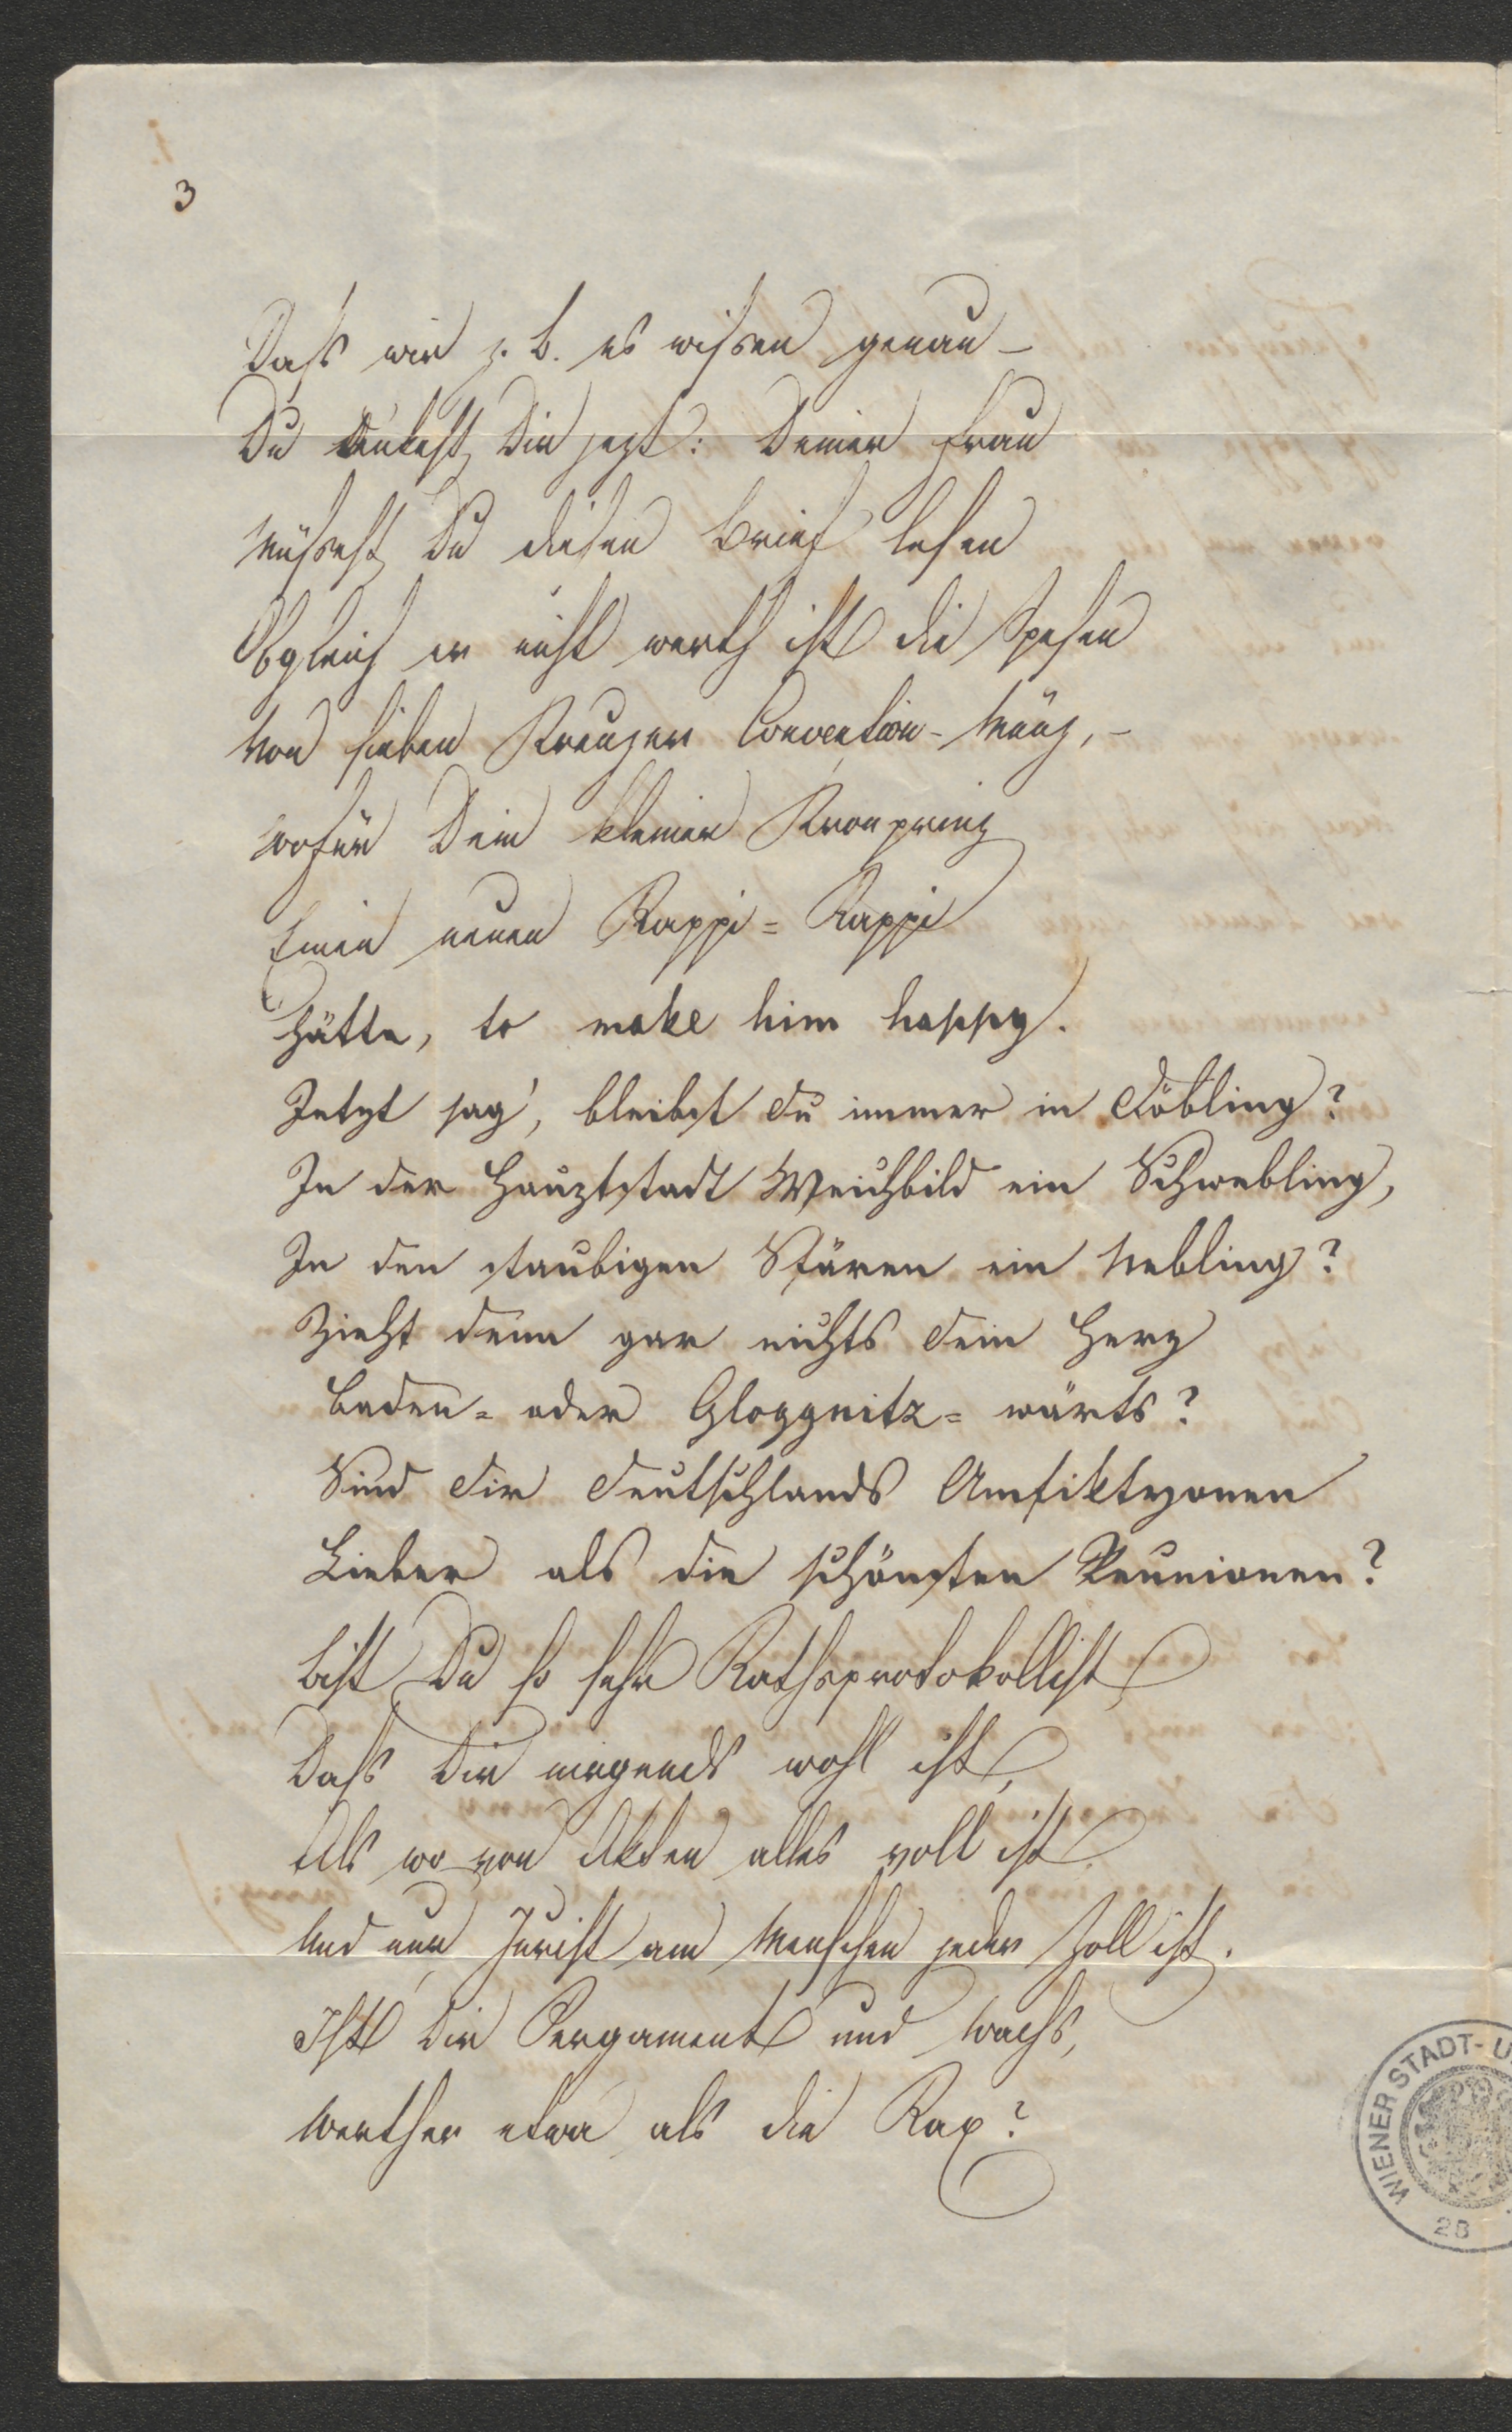 3
Daß wir z. B. es wißen genau –
Du denkest Dir jezt: Deiner Frau
Müßest Du diesen Brief lesen
Obgleich er nicht werth ist die Spesen
Von sieben Kreuzer Convention-Münz, –
Wofür Dein kleiner Kronprinz
Einen neuen Kappi-Kappi
Hätte, to make him happy.
Jetzt sag', bleibst du immer in Döbling?
In der Hauptstadt Weichbild ein Schwebling,
In den staubigen Sfären ein Nebling?
Zieht denn gar nichts dein Herz
Baden- oder Gloggnitz-wärts?
Sind dir Deutschlands Amfiktyonen
Lieber als die schönsten Reunionen?
Bist Du so sehr Rathsprotokollist,
Daß Dir nirgends wohl ist,
Als wo von Akten alles voll ist
Und nur Jurist am Menschen jeder Zoll ist.
Ist Dir Pergament und Wachs,
Werther etwa als die Rax?
WIENER STADT- U
28